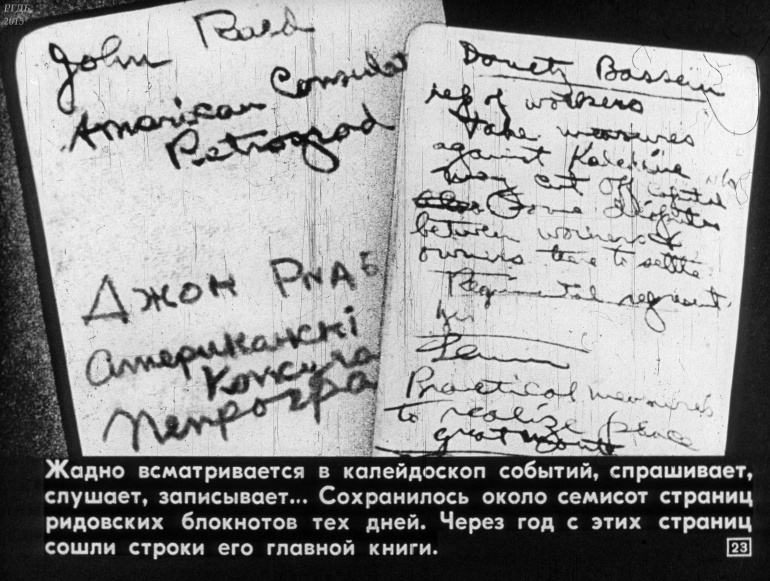 РГДБ
2015
John Reed
American Consulat
Petrograd
Джон Рид
Американскі
Консула
Петрогра
Donetz Bassein
rep of workers
Take measures
against Kaledine
may cut off
some disputes
between workers &
owners have to settle
Regimental represent
Lenin
Practical measures
to realize peace
Жадно всматривается в калейдоскоп событий, спрашивает,
слушает, записывает... Сохранилось около семисот страниц
ридовских блокнотов тех дней. Через год с этих страниц
сошли строки его главной книги.
23